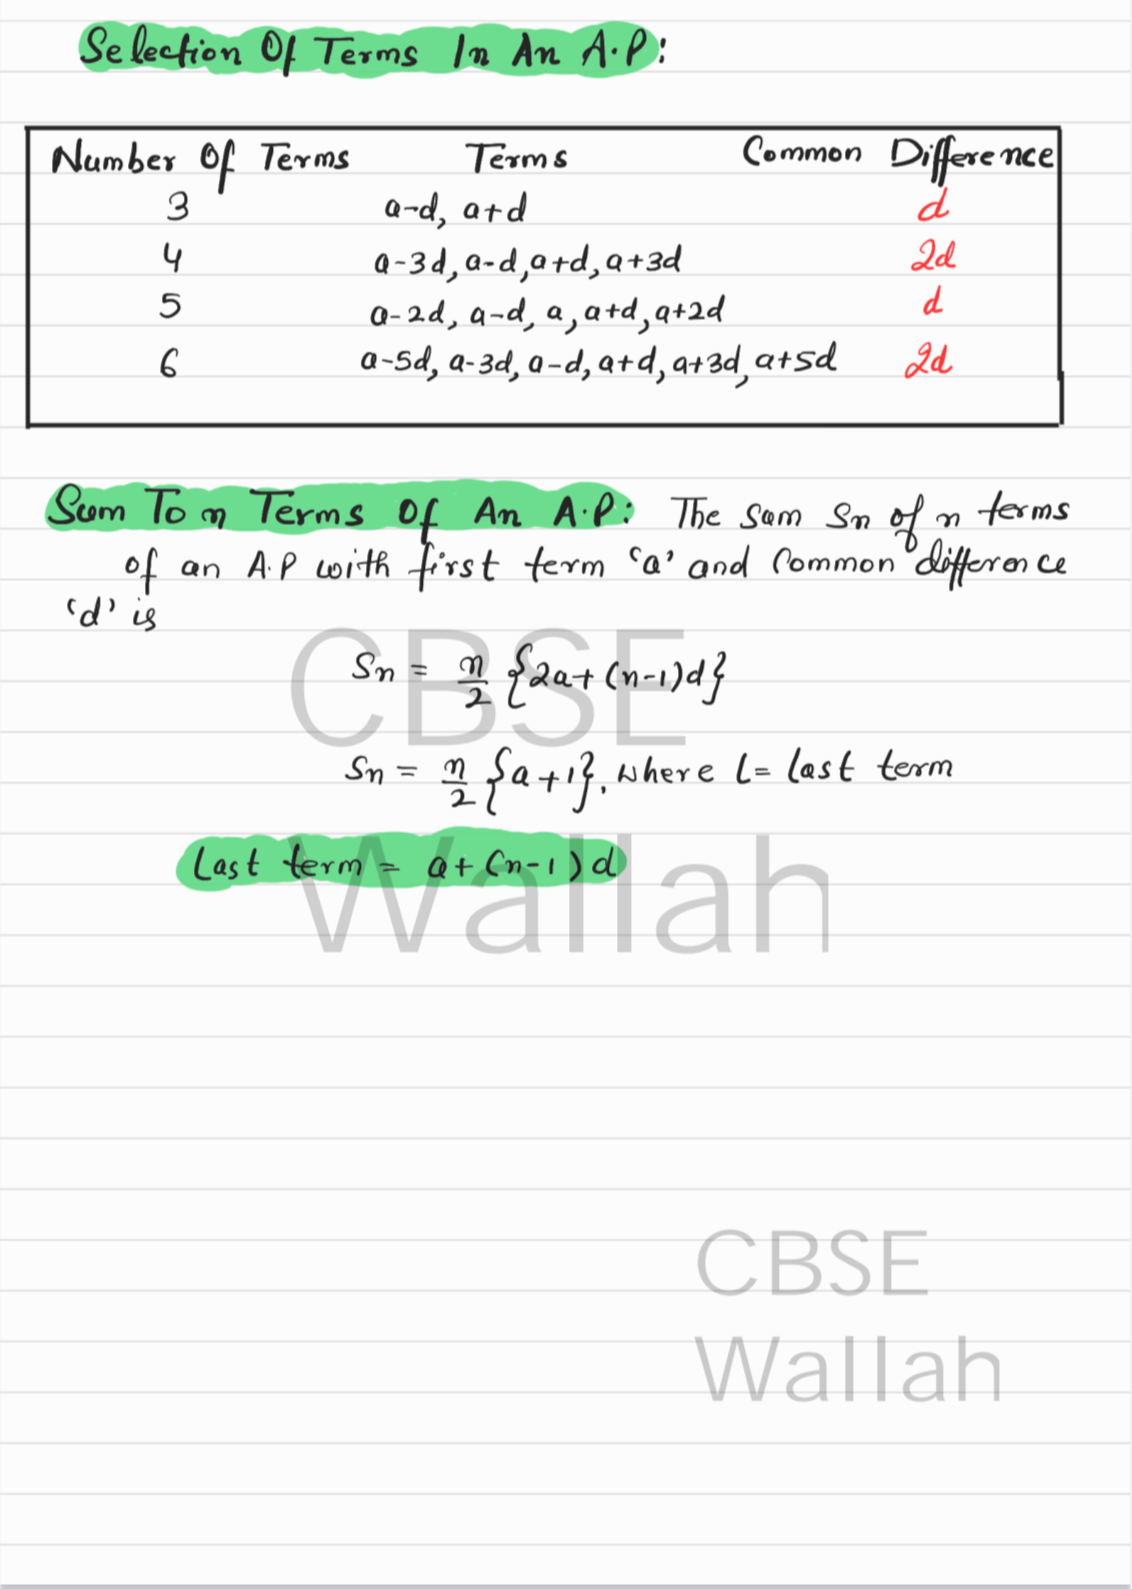 Selection Of Terms In An A.P:
Number Of Terms Terms Common Difference
3 a-d, a+d d
4 a-3d, a-d, a+d, a+3d 2d
5 a-2d, a-d, a, a+d, a+2d d
6 a-5d, a-3d, a-d, a+d, a+3d, a+5d 2d
Sum To n Terms Of An A.P: The Sum Sn of n terms
of an A.P with first term 'a' and Common difference
'd' is
Sn = n/2 {2a+(n-1)d}
Sn = n/2 {a+l}, where L= last term
Last term = a+(n-1)d
CBSE
Wallah
CBSE
Wallah